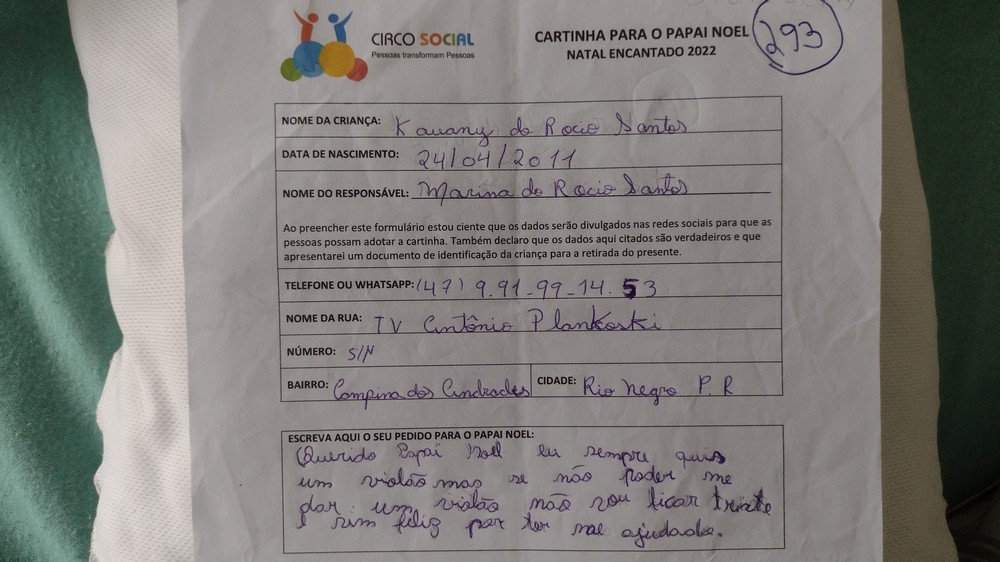 CIRCO SOCIAL
Pessoas transformam Pessoas
CARTINHA PARA O PAPAI NOEL
NATAL ENCANTADO 2022
293
NOME DA CRIANÇA: Kauany do Rocio Santos
DATA DE NASCIMENTO: 24/04/2011
NOME DO RESPONSÁVEL: Marina do Rocio Santos
Ao preencher este formulário estou ciente que os dados serão divulgados nas redes sociais para que as
pessoas possam adotar a cartinha. Também declaro que os dados aqui citados são verdadeiros e que
apresentarei um documento de identificação da criança para a retirada do presente.
TELEFONE OU WHATSAPP: (47) 9.91-99-14.53
NOME DA RUA: TV Antônio Plankoski
NÚMERO: S/N
BAIRRO: Campina dos Andrades CIDADE: Rio Negro P.R
ESCREVA AQUI O SEU PEDIDO PARA O PAPAI NOEL:
Querido Papai Noel eu sempre quis
um violão mas se não poder me
dar um violão não vou ficar triste
e sim feliz por ter me ajudado.